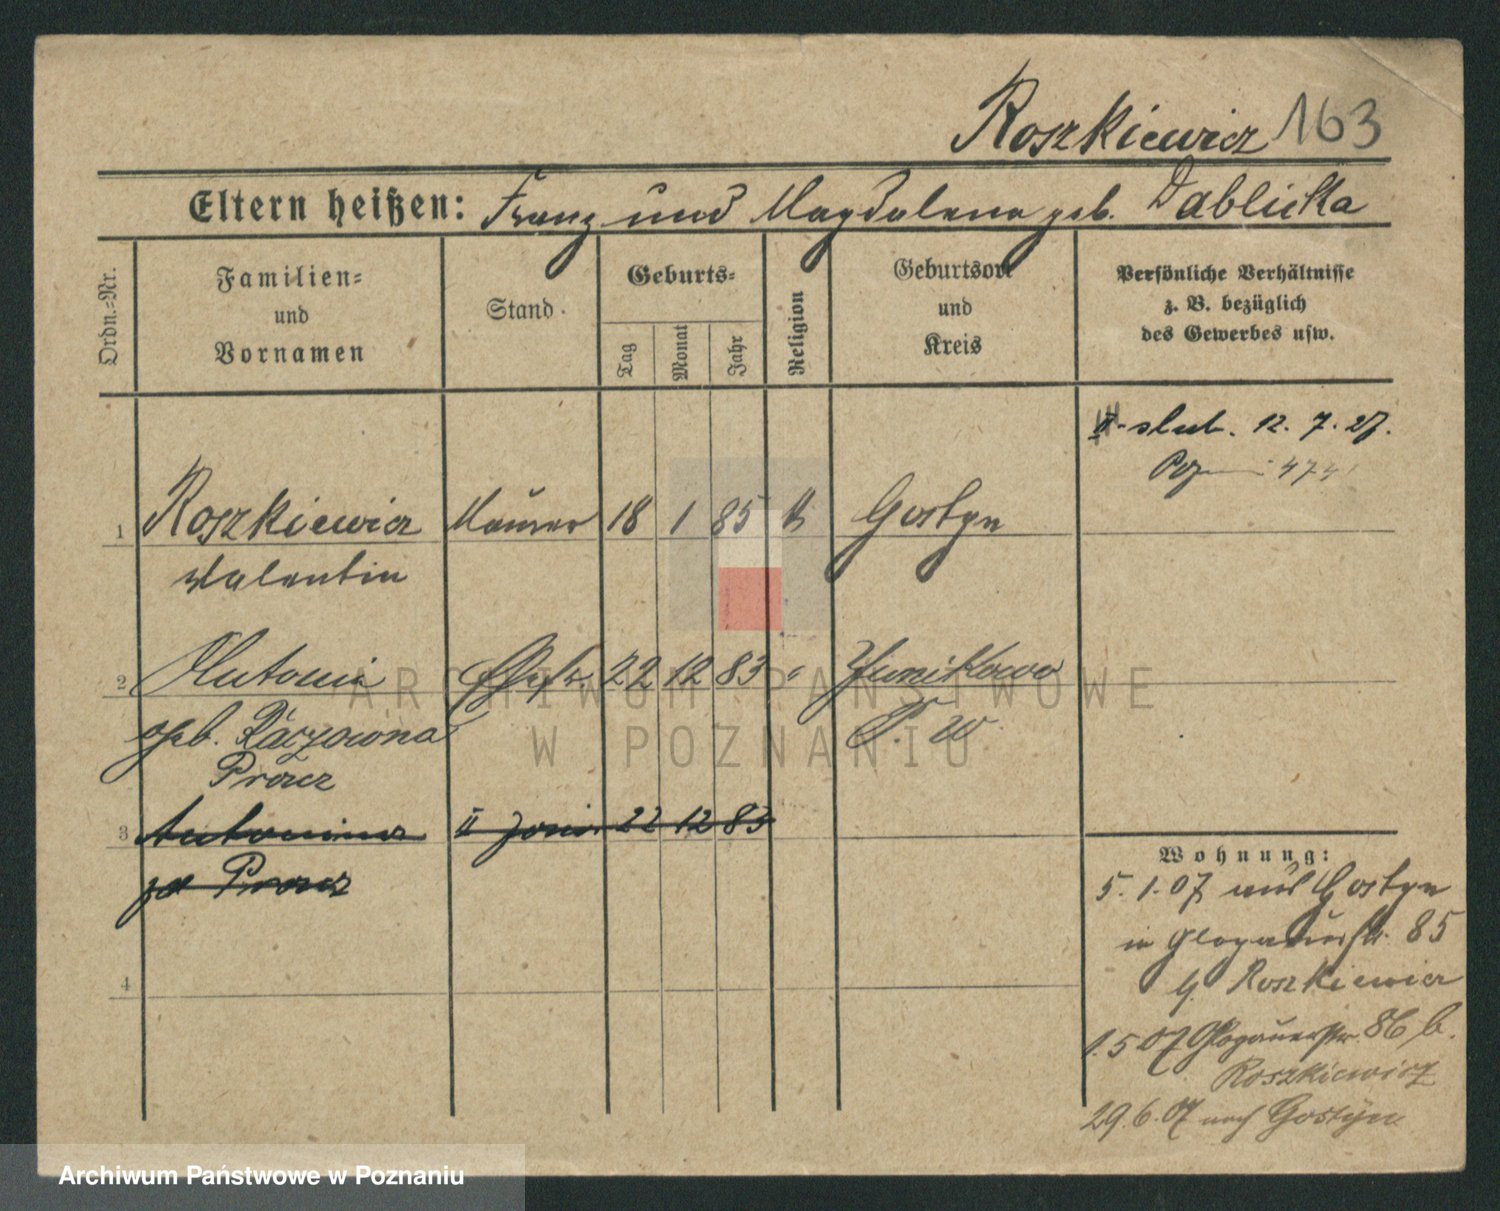 Roszkiewicz 163
Eltern heißen: Franz und Magdalena geb. Dablicka
Ordn.=Nr.
Familien=
und
Vornamen
Stand.
Geburts=
Tag
Monat
Jahr
Religion
Geburtsort
und
Kreis
Persönliche Verhältnisse
z. B. bezüglich
des Gewerbes usw.
II-slub. 12. 7. 27.
1 Roszkiewicz Maurer 18 1 85 k Gostyn
Valentin
2 Antonie 22 12 83 " Junikowo
geb. P. W.
Procz
3 Antonina II 22 12 83
Procz
4
Wohnung:
5. 1. 07 aus Gostyn
in Glogauerstr. 85
b. Roszkiewicz
1. 5 07 Glogauerstr. 86 b.
Roszkiewicz
29. 6. 07 nach Gostyn
ARCHIWUM PAŃSTWOWE
W POZNANIU
Archiwum Państwowe w Poznaniu